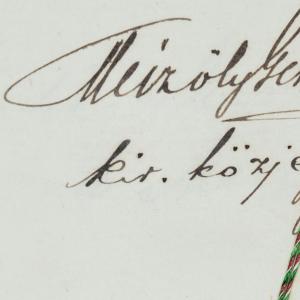 Meizöly Ge
kir. közje